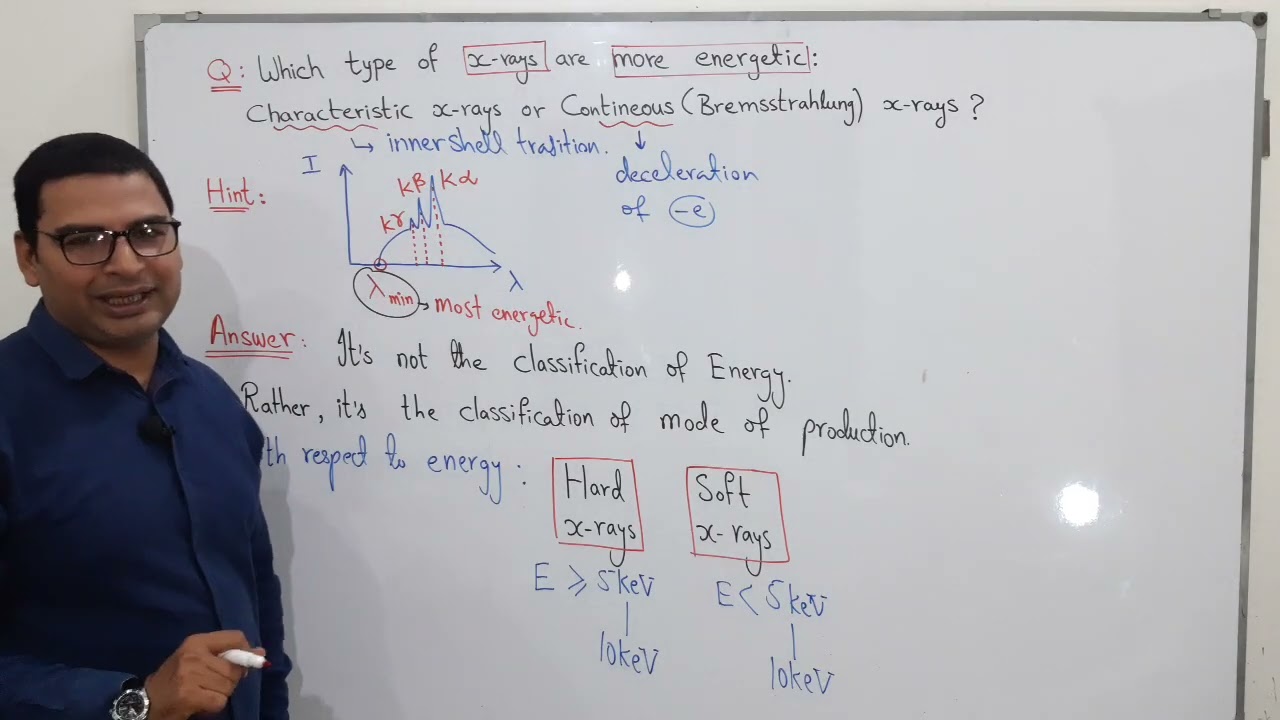 Q: Which type of x-rays are more energetic:
Characteristic x-rays or Contineous (Bremsstrahlung) x-rays ?
↳ inner shell trasition. ↓
deceleration
of -e
Hint:
I
Kγ Kβ Kα
λ
λmin → most energetic.
Answer: It's not the classification of Energy.
Rather, it's the classification of mode of production.
th respect to energy:
Hard
x-rays
Soft
x-rays
E ⩾ 5keV
10keV
E < 5keV
10keV